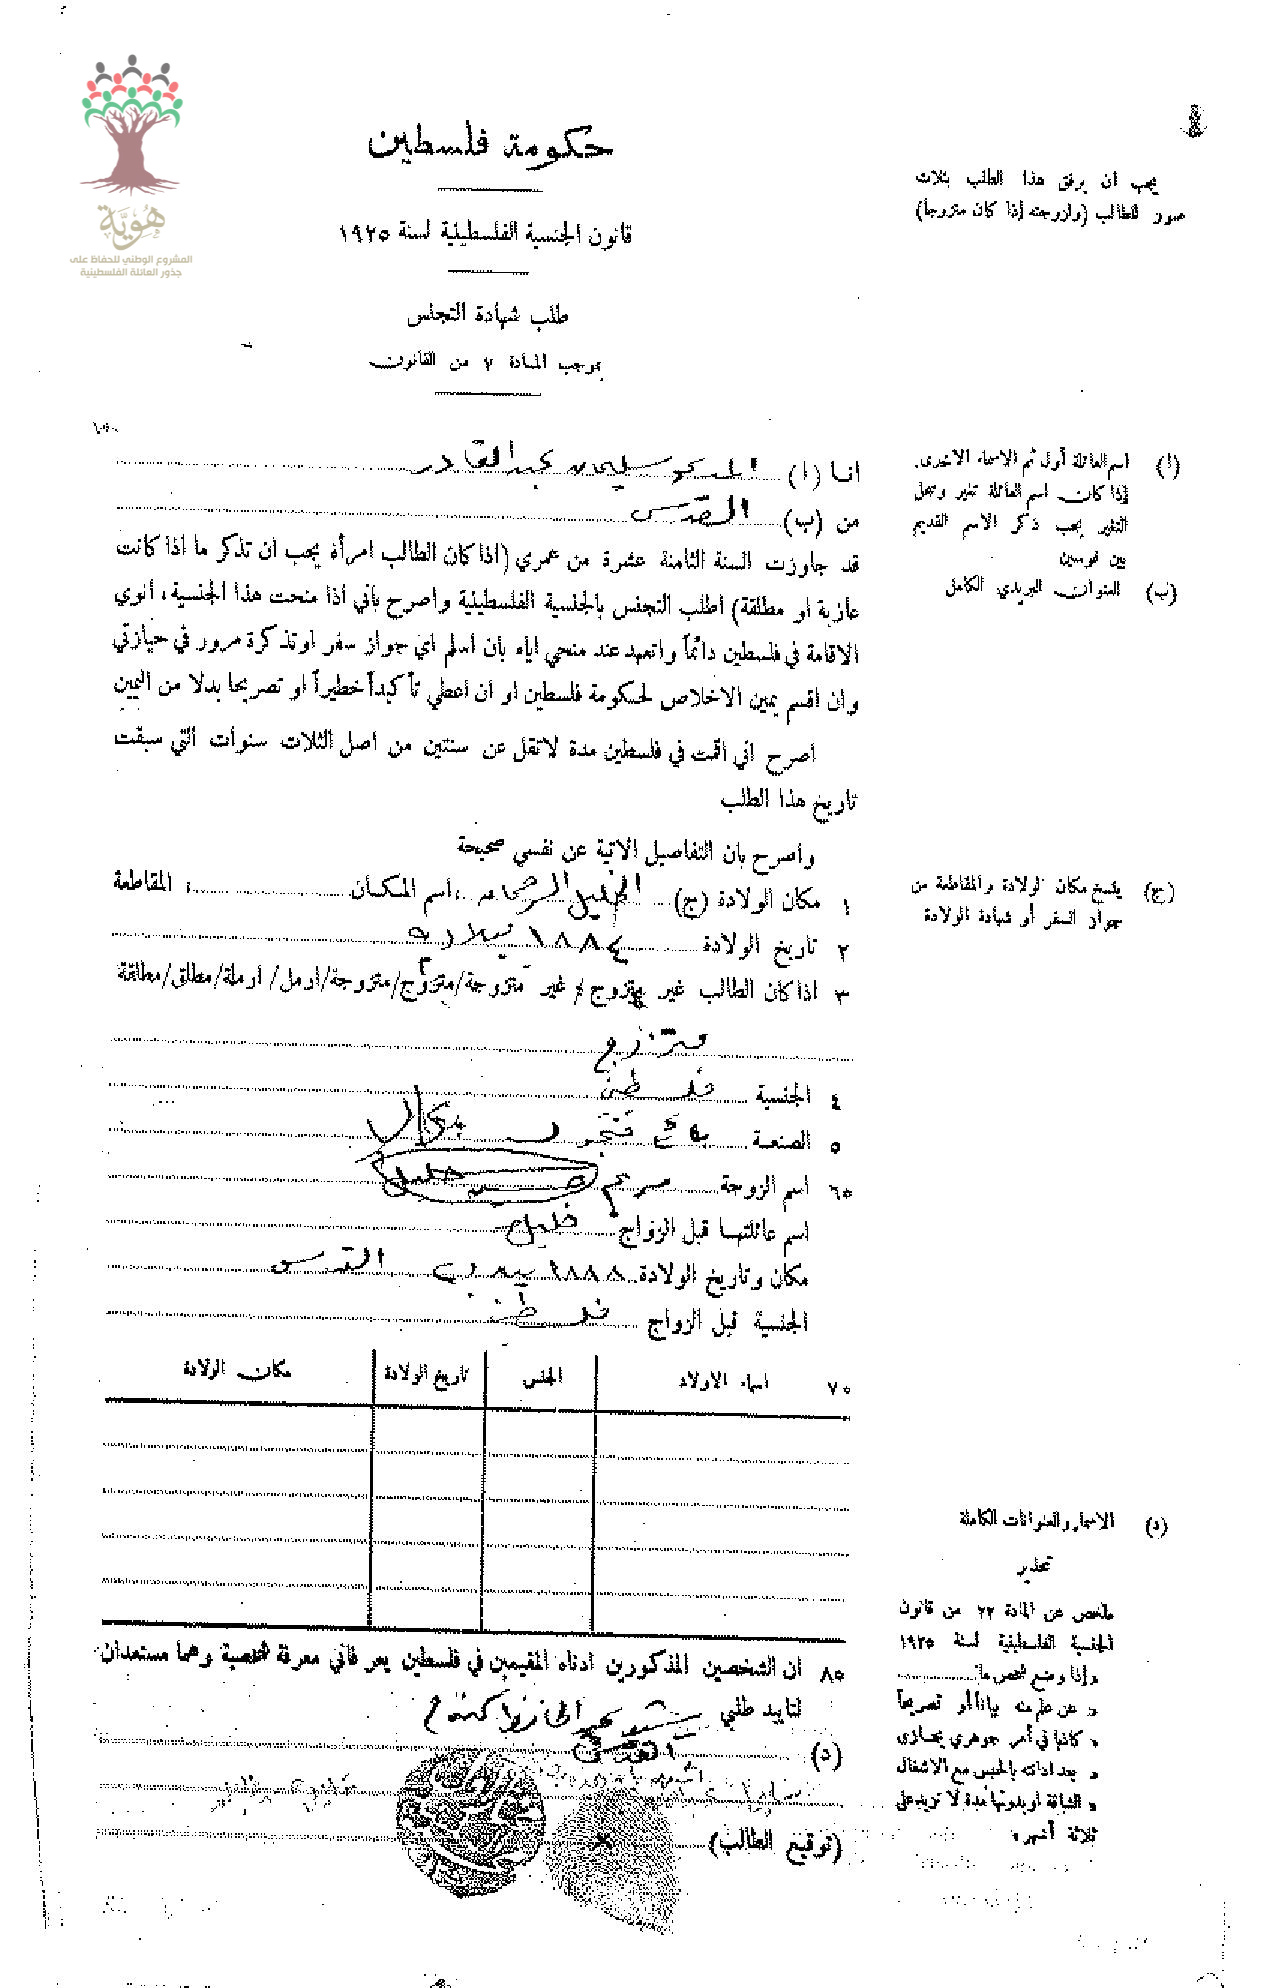 هُويَّة
المشروع الوطني للحفاظ على
جذور العائلة الفلسطينية
حكومة فلسطين
يجب ان يرفق هذا الطلب بثلاث
صور للطالب (ولزوجته إذا كان متزوجا)
قانون الجنسية الفلسطينية لسنة ١٩٢٥
طلب شهادة التجنس
بموجب المادة ٧ من القانون
انا (ا) سليمان عبد القادر
(ا) اسم العائلة أول ثم الاسماء الاخرى.
إذا كان اسم العائلة تغير وسجل
التغير يجب ذكر الاسم القديم
بين قوسين
من (ب) القدس
(ب) العنوان البريدي الكامل
قد جاوزت السنة الثامنة عشرة من عمري (اذا كان الطالب امرأة يجب ان تذكر ما اذا كانت
عازبة او مطلقة) اطلب التجنس بالجنسية الفلسطينية واصرح بأني اذا منحت هذا الجنسية، أنوي
الاقامة في فلسطين دائماً واتعهد عند منحي اياه بان اسلم اي جواز سفر او تذكرة مرور في حيازتي
وان اقسم يمين الاخلاص لحكومة فلسطين او ان اعطي تأكيداً خطيراً او تصريحا بدلا من اليمين
اصرح اني اقمت في فلسطين مدة لا تقل عن سنتين من اصل الثلاث سنوات التي سبقت
تاريخ هذا الطلب
واصرح بان التفاصيل الاتية عن نفسي صحيحة
١ مكان الولادة (ج) الخليل ؛ اسم المكان ؛ المقاطعة
(ج) ينسخ مكان الولادة والمقاطعة من
جواز السفر أو شهادة الولادة
٢ تاريخ الولادة ١٨٨٤
٣ اذا كان الطالب غير متزوج / غير متزوجة/متزوج/متزوجة/ارمل/ارملة/مطلق/مطلقة
متزوج
٤ الجنسية فلسطيني
٥ الصنعة بائع
٦٥ اسم الزوجة مريم خليل
اسم عائلتها قبل الزواج خليل
مكان وتاريخ الولادة ١٨٨٨ القدس
الجنسية قبل الزواج
٧٥ اسماء الاولاد الجنس تاريخ الولادة مكان الولادة
٨٥ ان الشخصين المذكورين ادناه المقيمين في فلسطين يعرفاني معرفة شخصية وهما مستعدان
لتاييد طلبي
(د)
(توقيع الطالب)
(د) الاسماء والعنوانات الكاملة
تحذير
ملخص عن المادة ٢٢ من قانون
الجنسية الفلسطينية لسنة ١٩٢٥
وإذا وضع شخص ما
عن علم منه بياناً أو تصريحاً
كاذبا في أمر جوهري يجازى
بعد ادانته بالحبس مع الاشغال
الشاقة او بدونها مدة لا تزيد على
ثلاثة أشهر